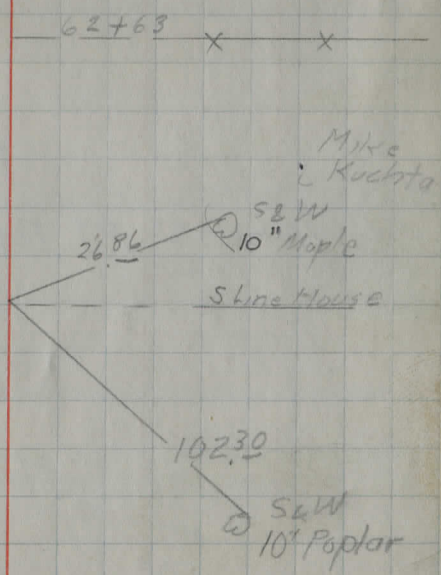 62+63
Mike
Kuchta
S&W
10" Maple
26.86
S Line House
102.30
S&W
10" Poplar